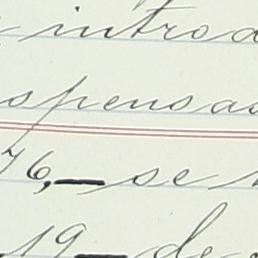 introd
spensad
76,— se
19— de